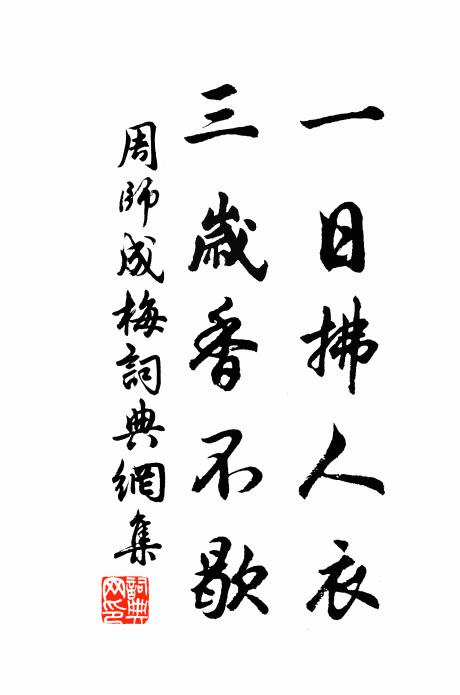 一日拂人衣
三歲香不歇
周師成梅詞典網集
詞典網印